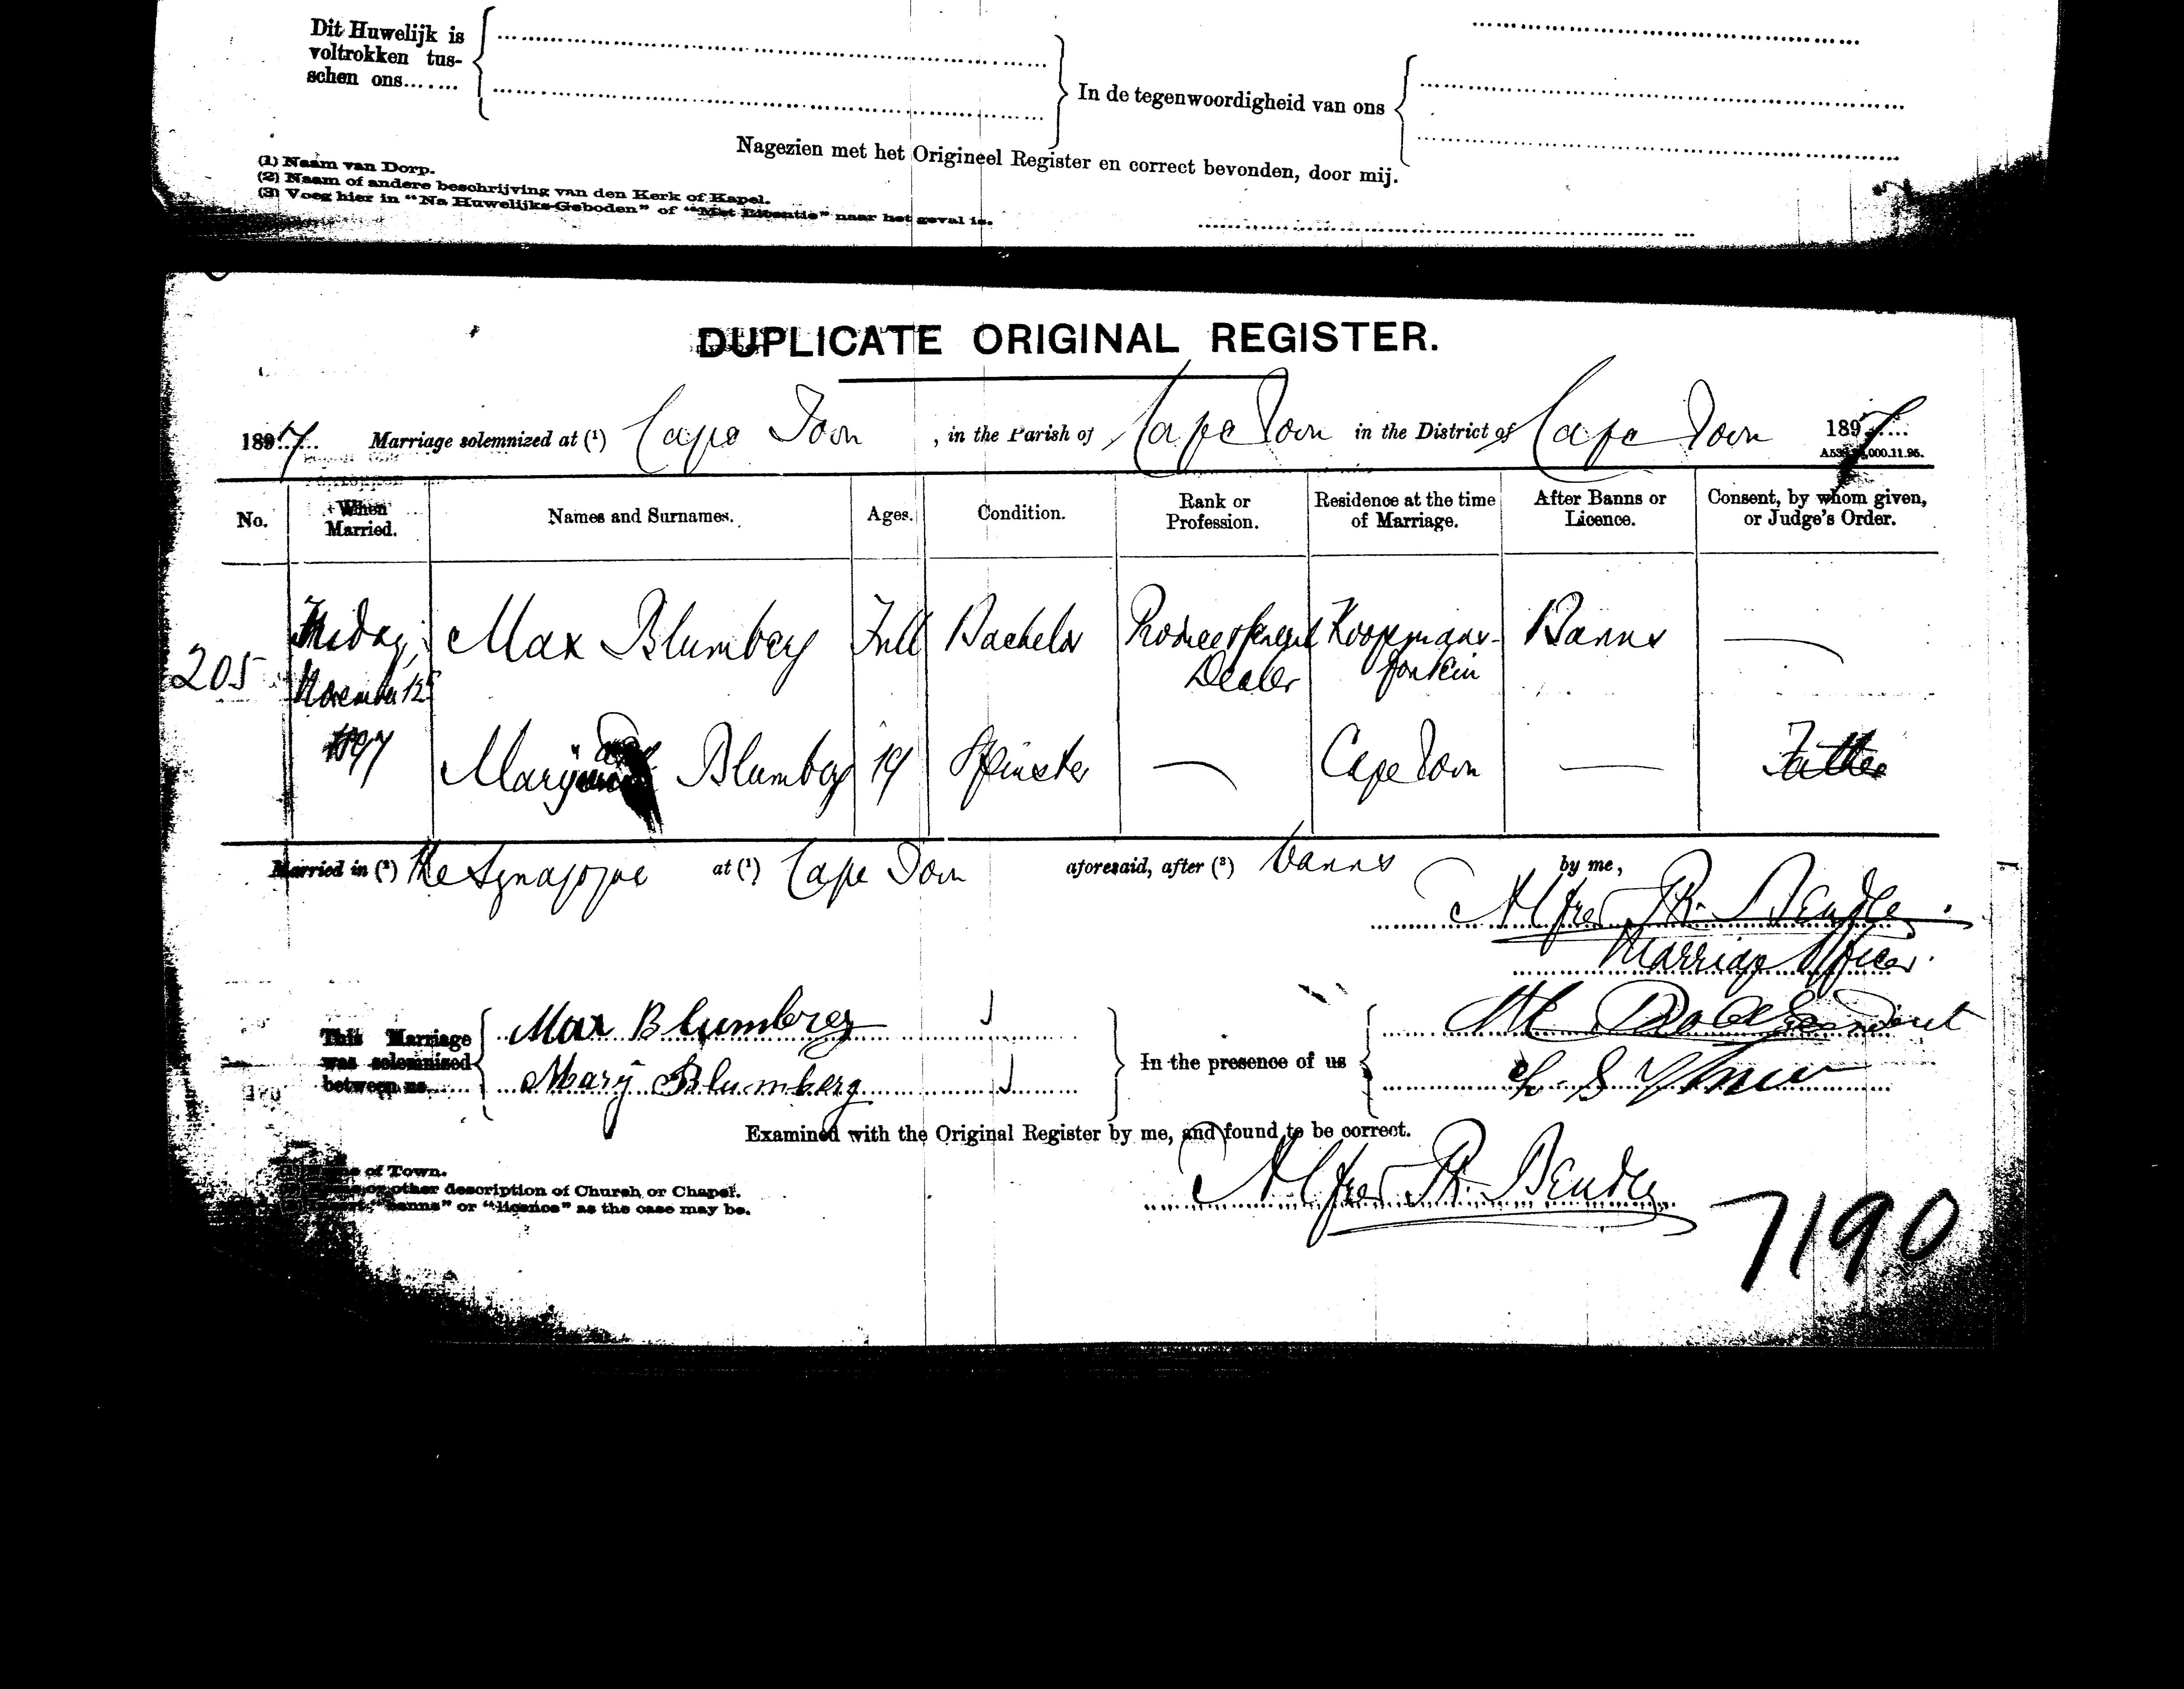 Dit Huwelijk is
voltrokken tus-
schen ons......
In de tegenwoordigheid van ons
Nagezien met het Origineel Register en correct bevonden, door mij.
(1) Naam van Dorp.
(2) Naam of andere beschrijving van den Kerk of Kapel.
(3) Voeg hier in "Na Huwelijks-Geboden" of "Met Licentie" naar het geval is.
DUPLICATE ORIGINAL REGISTER.
1897 Marriage solemnized at (1) Cape Town, in the Parish of Cape Town in the District of Cape Town 1897
No. When Married. Names and Surnames. Ages. Condition. Rank or Profession. Residence at the time of Marriage. After Banns or Licence. Consent, by whom given, or Judge's Order.
205 Friday, November 12 1897 Max Blumberg Full Bachelor Dealer Koopmans- fontein Banns —
Mary Blumberg 19 Spinster — Cape Town — Father
Married in (2) the Synagogue at (1) Cape Town aforesaid, after (3) banns by me,
Alfred P. Bender.
Marriage Officer.
This Marriage
was solemnized
between us......
Max Blumberg
Mary Blumberg
In the presence of us
Examined with the Original Register by me, and found to be correct.
Alfred P. Bender
of Town.
or other description of Church or Chapel.
"banns" or "licence" as the case may be.
7190